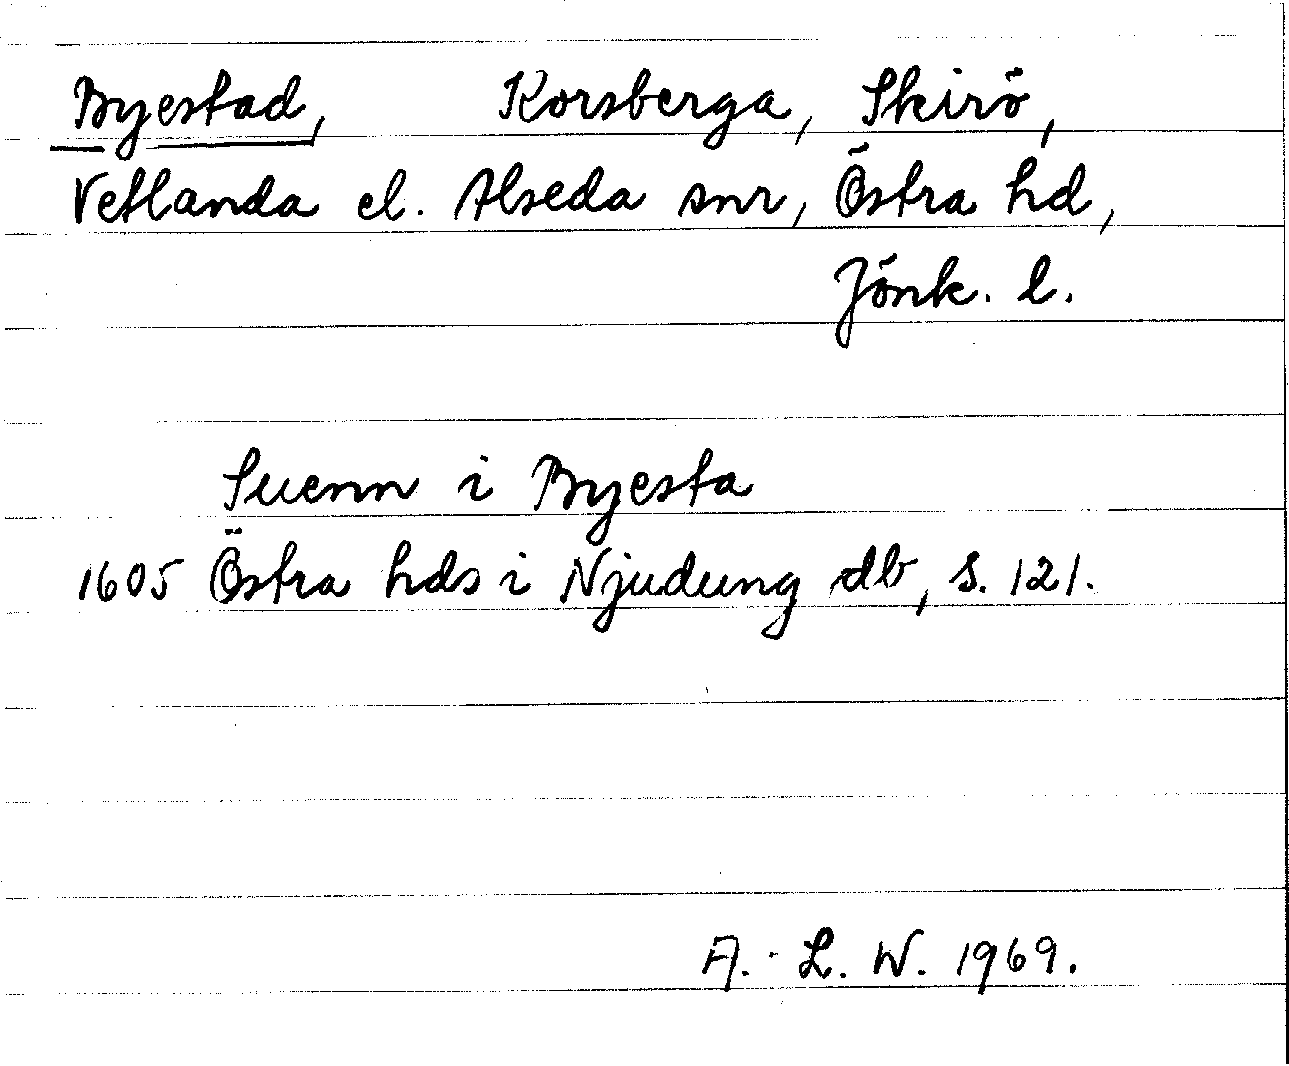 Byestad, Korsberga, Skirö,
Vetlanda el. Alseda snr, Östra hd,
Jönk. l.
Suenn i Byesta
1605 Östra hds i Njudung db, s. 121.
A.-L. W. 1969.